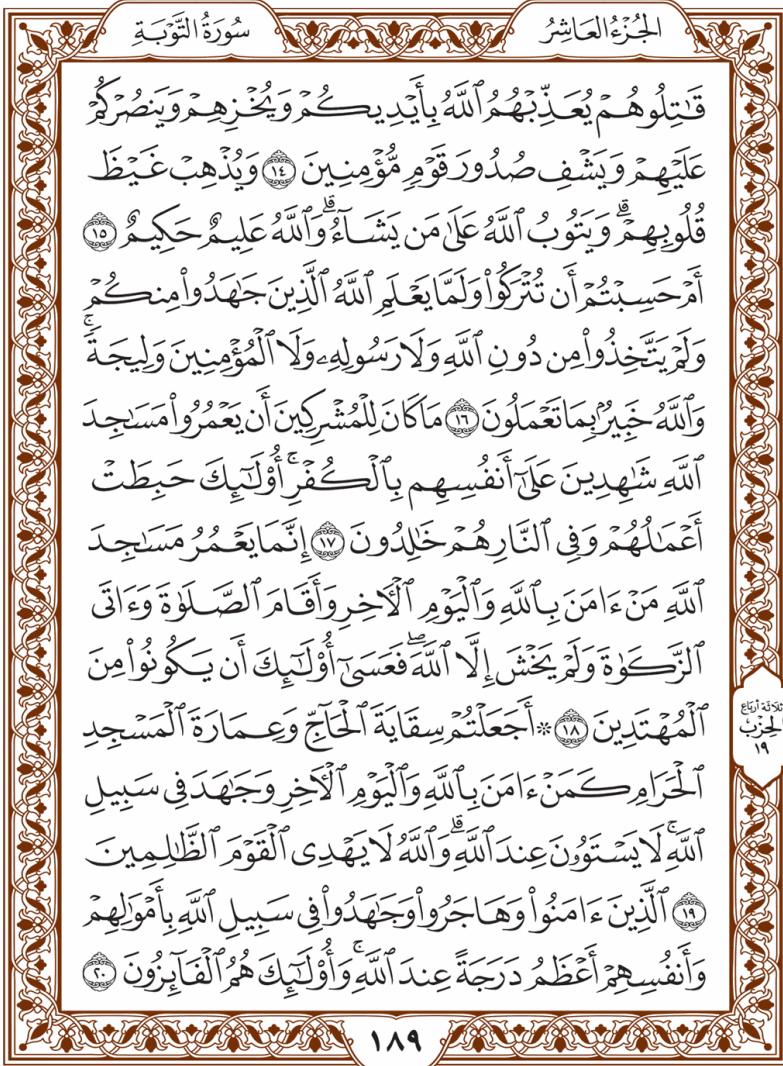 الجُزْءُ العَاشِرُ
سُورَةُ التَّوْبَةِ
قَٰتِلُوهُمْ يُعَذِّبْهُمُ ٱللَّهُ بِأَيْدِيكُمْ وَيُخْزِهِمْ وَيَنصُرْكُمْ
عَلَيْهِمْ وَيَشْفِ صُدُورَ قَوْمٍ مُّؤْمِنِينَ ١٤ وَيُذْهِبْ غَيْظَ
قُلُوبِهِمْۗ وَيَتُوبُ ٱللَّهُ عَلَىٰ مَن يَشَآءُۗ وَٱللَّهُ عَلِيمٌ حَكِيمٌ ١٥
أَمْ حَسِبْتُمْ أَن تُتْرَكُوا۟ وَلَمَّا يَعْلَمِ ٱللَّهُ ٱلَّذِينَ جَٰهَدُوا۟ مِنكُمْ
وَلَمْ يَتَّخِذُوا۟ مِن دُونِ ٱللَّهِ وَلَا رَسُولِهِۦ وَلَا ٱلْمُؤْمِنِينَ وَلِيجَةًۚ
وَٱللَّهُ خَبِيرٌۢ بِمَا تَعْمَلُونَ ١٦ مَا كَانَ لِلْمُشْرِكِينَ أَن يَعْمُرُوا۟ مَسَٰجِدَ
ٱللَّهِ شَٰهِدِينَ عَلَىٰٓ أَنفُسِهِم بِٱلْكُفْرِۚ أُو۟لَٰٓئِكَ حَبِطَتْ
أَعْمَٰلُهُمْ وَفِى ٱلنَّارِ هُمْ خَٰلِدُونَ ١٧ إِنَّمَا يَعْمُرُ مَسَٰجِدَ
ٱللَّهِ مَنْ ءَامَنَ بِٱللَّهِ وَٱلْيَوْمِ ٱلْءَاخِرِ وَأَقَامَ ٱلصَّلَوٰةَ وَءَاتَى
ٱلزَّكَوٰةَ وَلَمْ يَخْشَ إِلَّا ٱللَّهَۖ فَعَسَىٰٓ أُو۟لَٰٓئِكَ أَن يَكُونُوا۟ مِنَ
ٱلْمُهْتَدِينَ ١٨ * أَجَعَلْتُمْ سِقَايَةَ ٱلْحَآجِّ وَعِمَارَةَ ٱلْمَسْجِدِ
ثلاثة أرباع
الحزب
١٩
ٱلْحَرَامِ كَمَنْ ءَامَنَ بِٱللَّهِ وَٱلْيَوْمِ ٱلْءَاخِرِ وَجَٰهَدَ فِى سَبِيلِ
ٱللَّهِۚ لَا يَسْتَوُۥنَ عِندَ ٱللَّهِۗ وَٱللَّهُ لَا يَهْدِى ٱلْقَوْمَ ٱلظَّٰلِمِينَ
١٩ ٱلَّذِينَ ءَامَنُوا۟ وَهَاجَرُوا۟ وَجَٰهَدُوا۟ فِى سَبِيلِ ٱللَّهِ بِأَمْوَٰلِهِمْ
وَأَنفُسِهِمْ أَعْظَمُ دَرَجَةً عِندَ ٱللَّهِۚ وَأُو۟لَٰٓئِكَ هُمُ ٱلْفَآئِزُونَ ٢٠
١٨٩